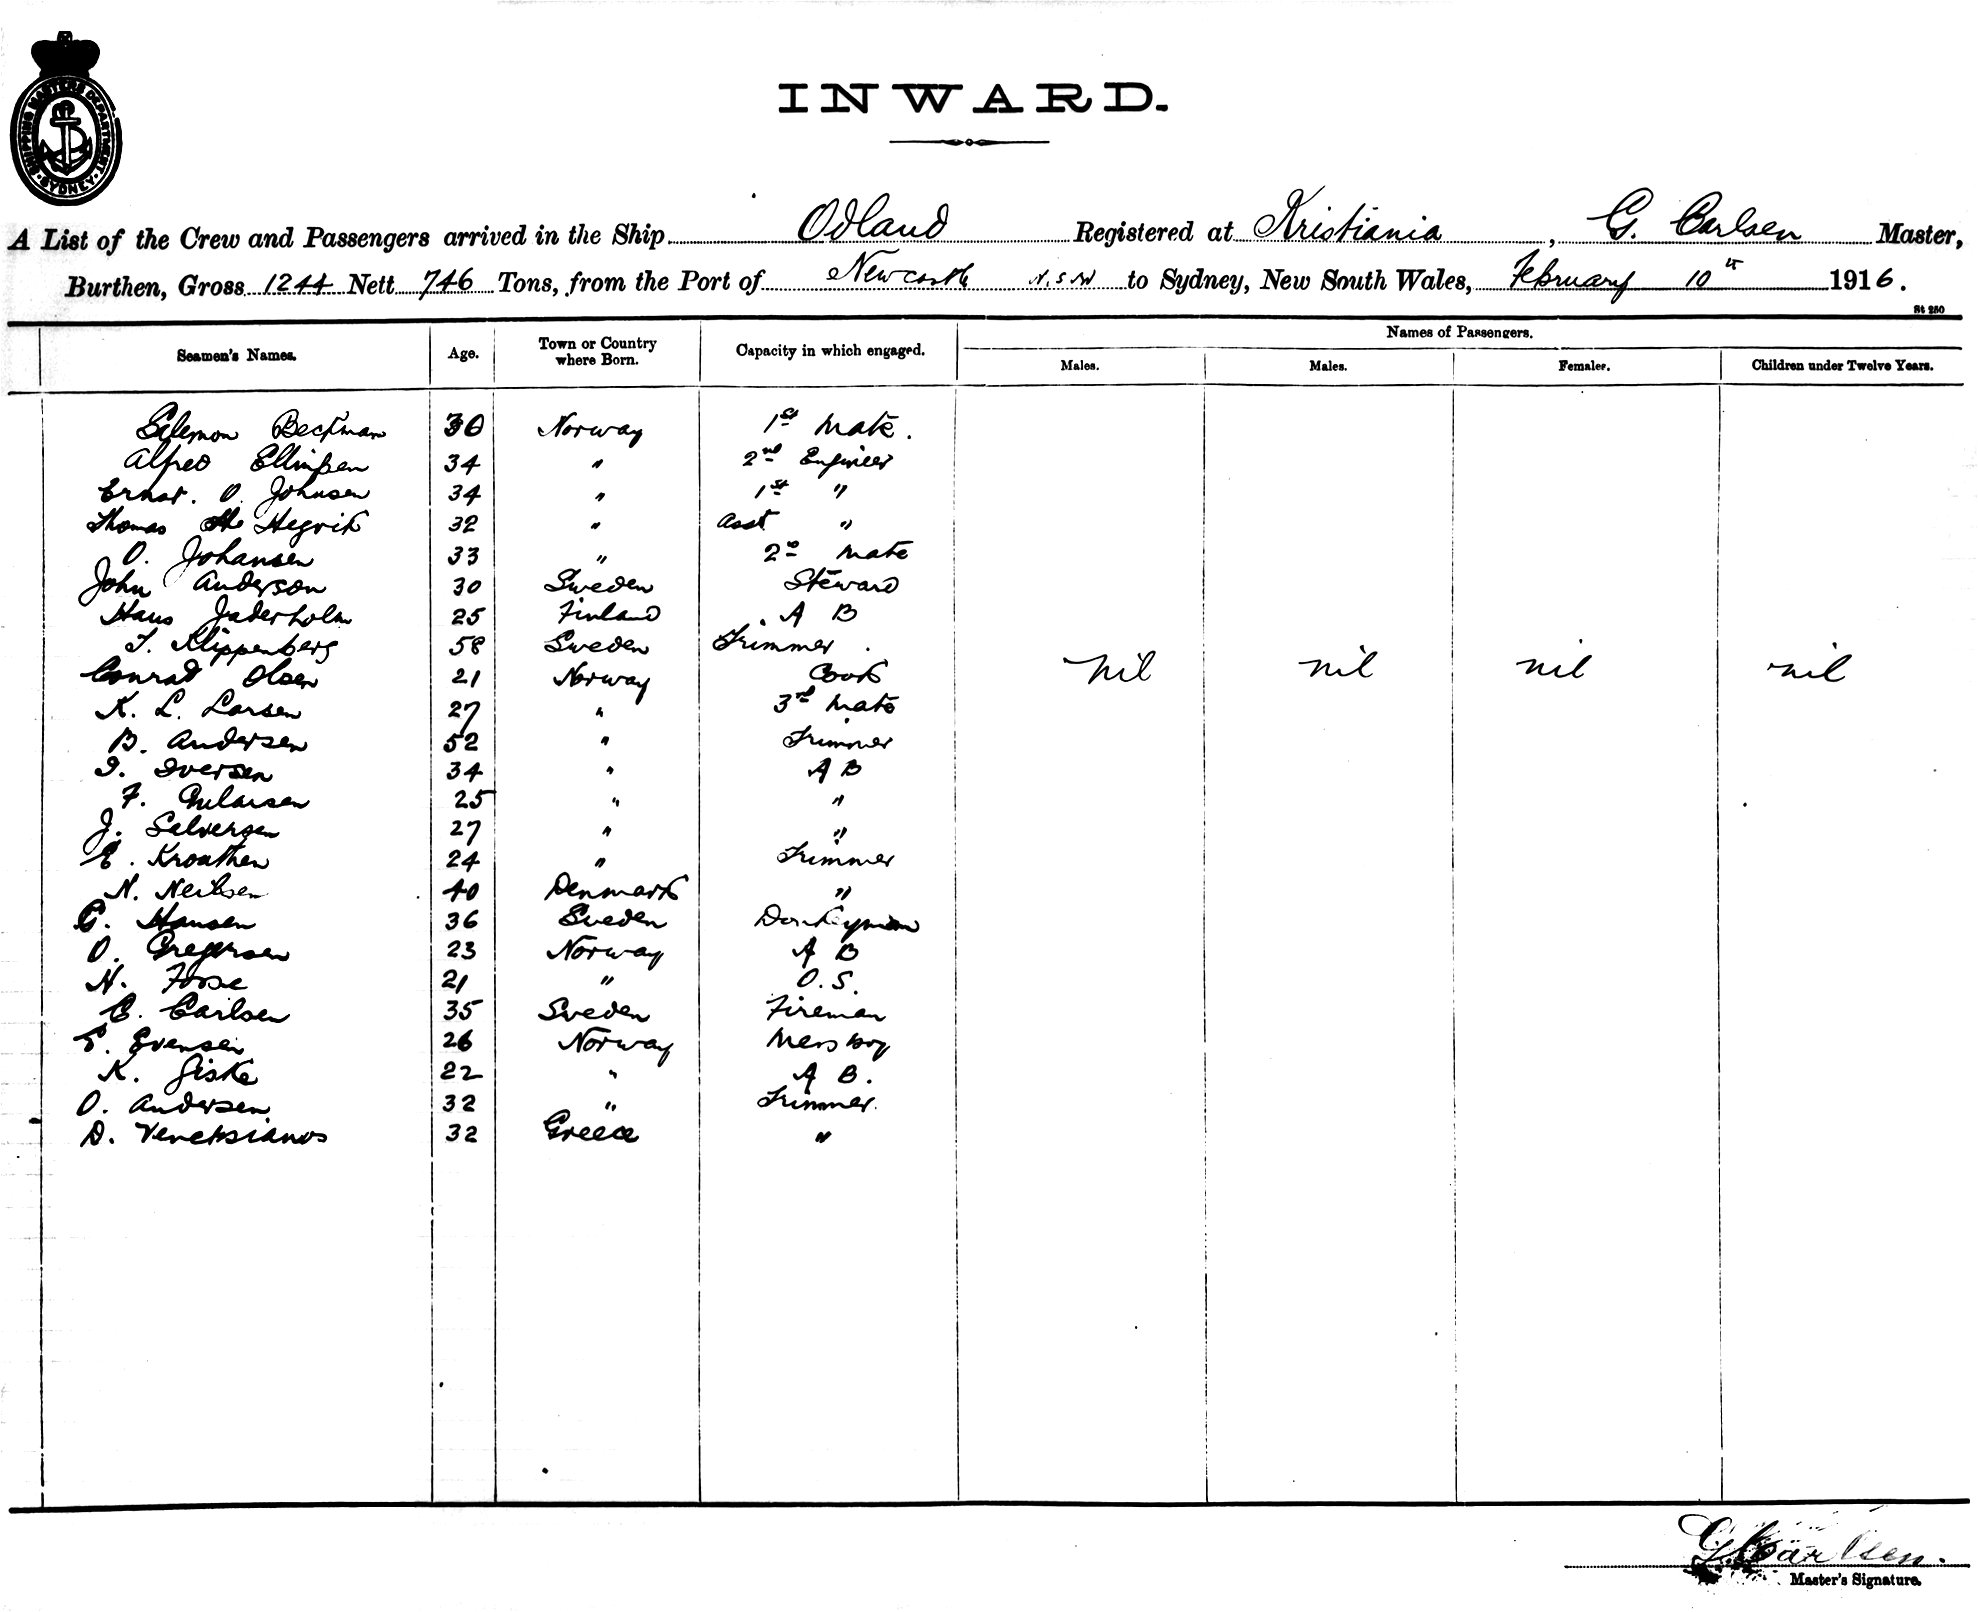 SHIPPING MASTERS DEPARTMENT. SYDNEY.
INWARD.
A List of the Crew and Passengers arrived in the Ship Odland Registered at Kristiania, G. Carlsen Master,
Burthen, Gross 1244 Nett 746 Tons, from the Port of Newcastle N.S.W to Sydney, New South Wales, February 10th 1916.
St 250
Seamen's Names. Age. Town or Country where Born. Capacity in which engaged. Names of Passengers.
Males. Males. Females. Children under Twelve Years.
Salemon Beckman 30 Norway 1st Mate.
Alfred Ellingsen 34 " 2nd Engineer
Ernst. O. Johnsen 34 " 1st "
Thomas Hegvik 32 " Asst "
O. Johansen 33 " 2nd Mate
John Anderson 30 Sweden Steward
Hans Jaderholm 25 Finland A B
T. Klippenberg 58 Sweden Trimmer.
Conrad Olsen 21 Norway Cook nil nil nil nil
K. L. Larsen 27 " 3rd Mate
B. Andersen 52 " Trimmer
I. Iversen 34 " A B
F. 25 " "
J. Salversen 27 " "
E. Kroathen 24 " Trimmer
N. Neilsen 40 Denmark "
G. Hansen 36 Sweden Donkeyman
O. Gregersen 23 Norway A B
N. Fosse 21 " O.S.
C. Carlsen 35 Sweden Fireman
E. Evensen 26 Norway Mess boy
K. Giske 22 " A B.
O. Andersen 32 " Trimmer.
D. Venetsianos 32 Greece "
G. Carlsen.
Master's Signature.